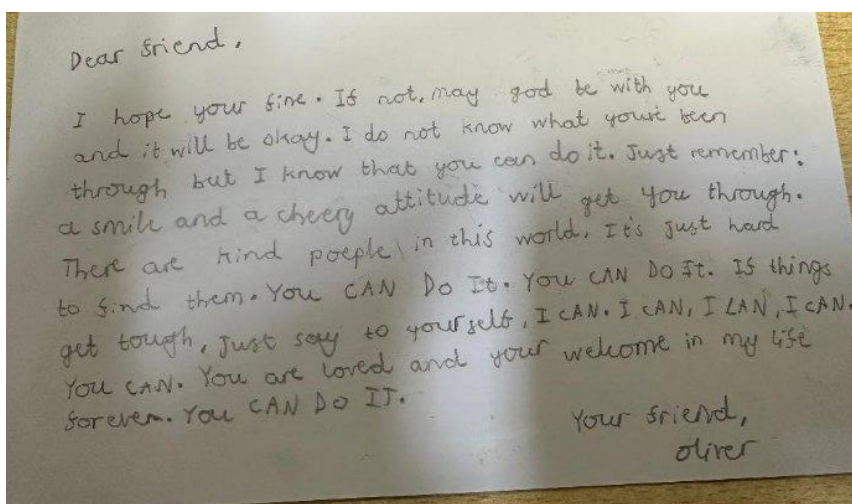 Dear friend,
I hope your fine. If not, may god be with you
and it will be okay. I do not know what youve been
through but I know that you can do it. Just remember:
a smile and a cheery attitude will get you through.
There are kind poeple in this world, It's just hard
to find them. You CAN Do It. You CAN DO It. If things
get tough, Just say to yourself, I CAN. I CAN, I CAN, I CAN.
You CAN. You are loved and your welcome in my life
forever. You CAN DO IT.
Your friend,
oliver